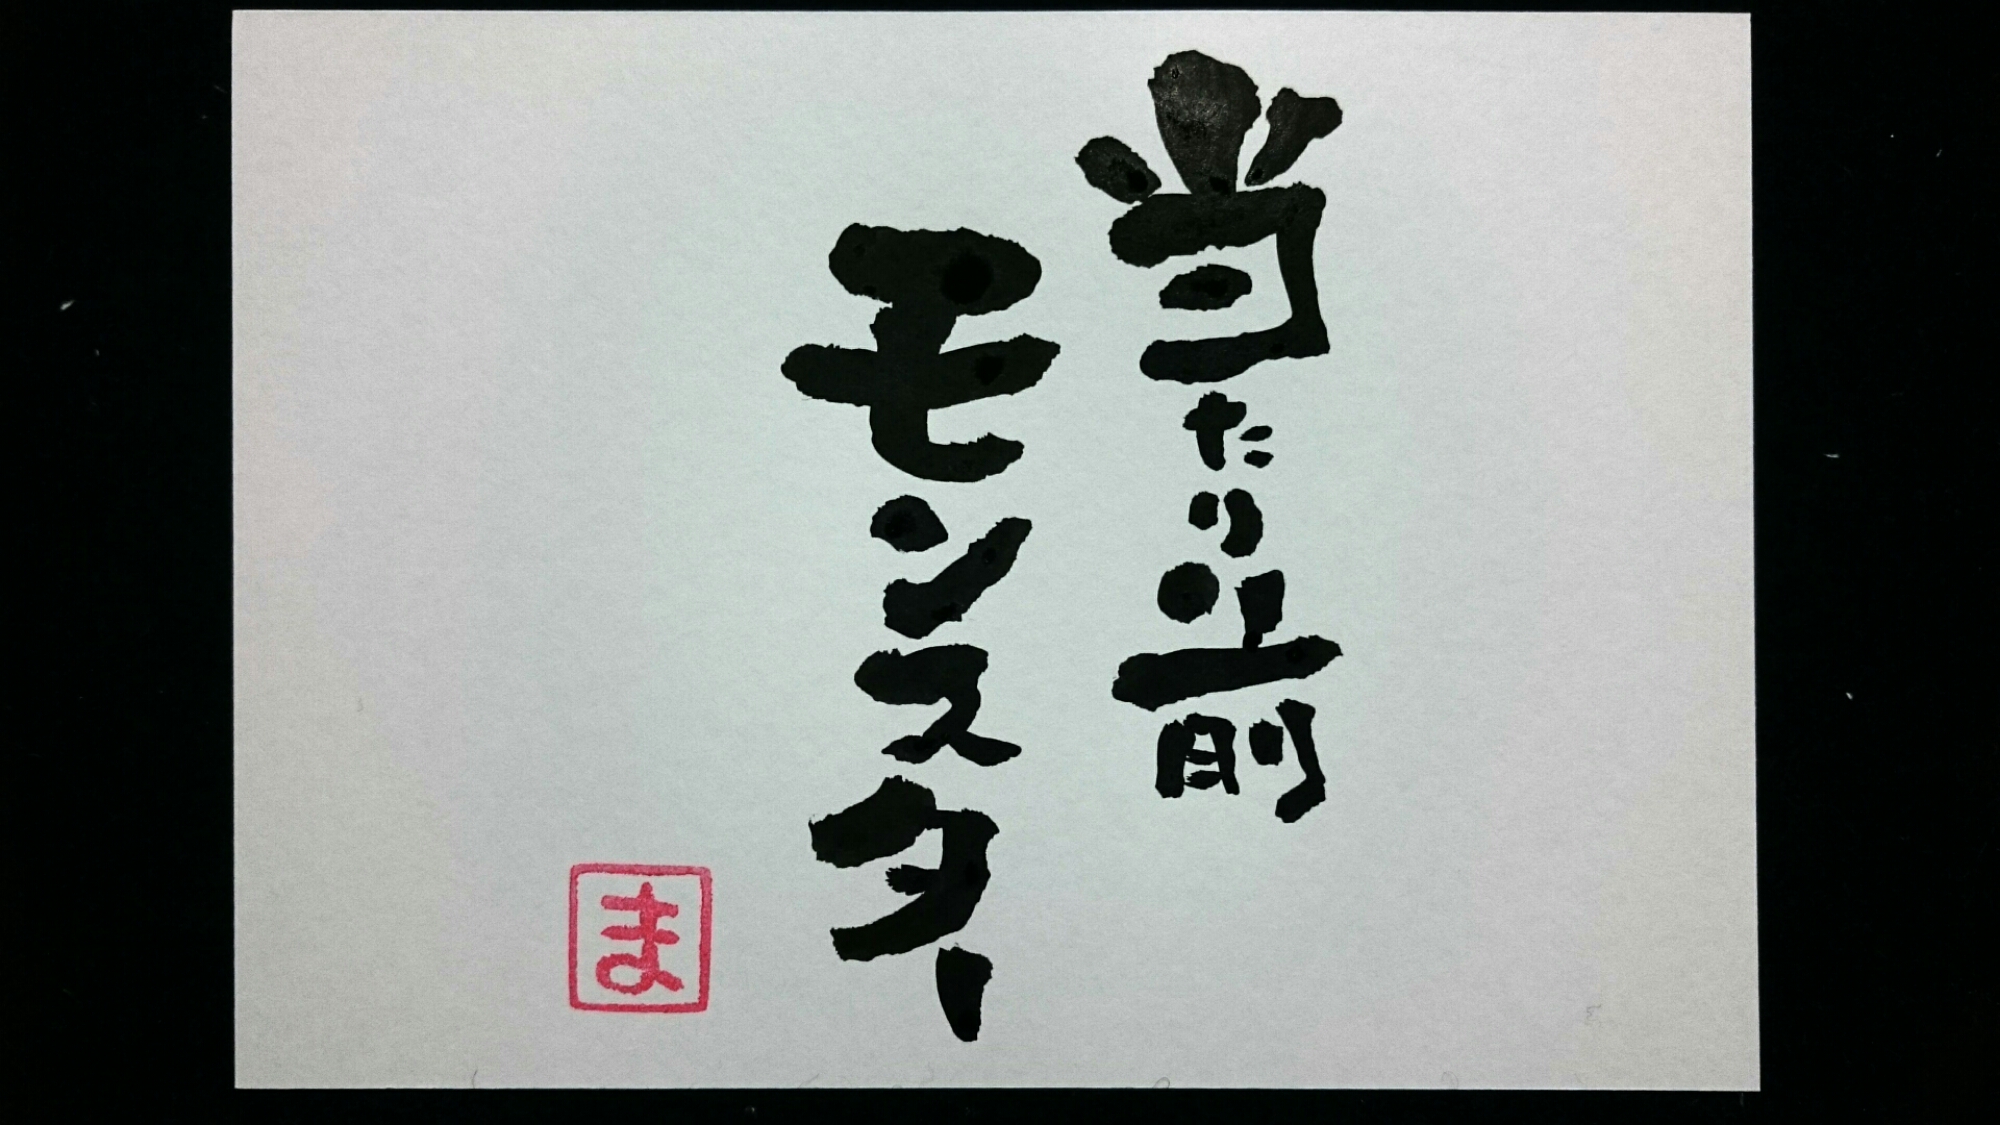 当たり前
モンスター
ま